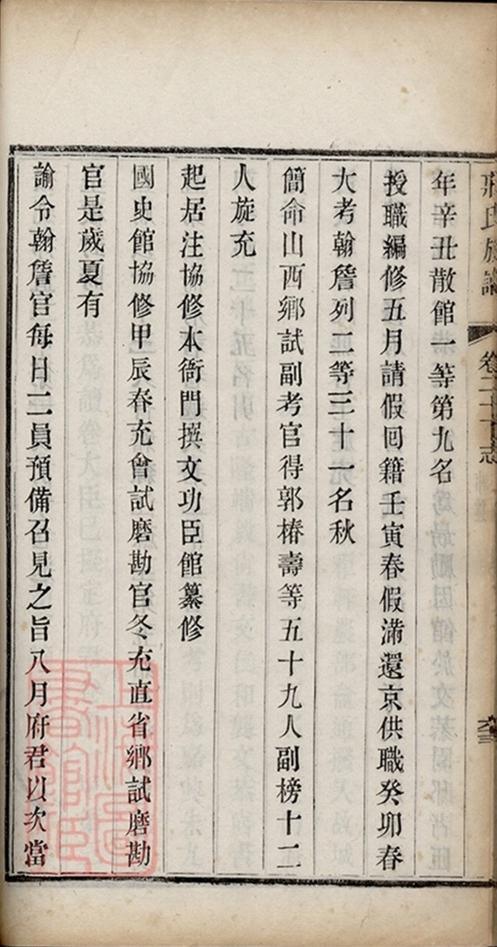 莊氏族譜 卷二十志
年辛丑散館一等第九名
授職編修五月請假回籍壬寅春假滿還京供職癸卯春
大考翰詹列二等三十一名秋
簡命山西鄉試副考官得郭椿壽等五十九人副榜十二
人旋充
起居注協修本衙門撰文功臣館纂修
國史館協修甲辰春充會試磨勘官冬充直省鄉試磨勘
官是歲夏有
諭令翰詹官每日二員預備召見之旨八月府君以次當